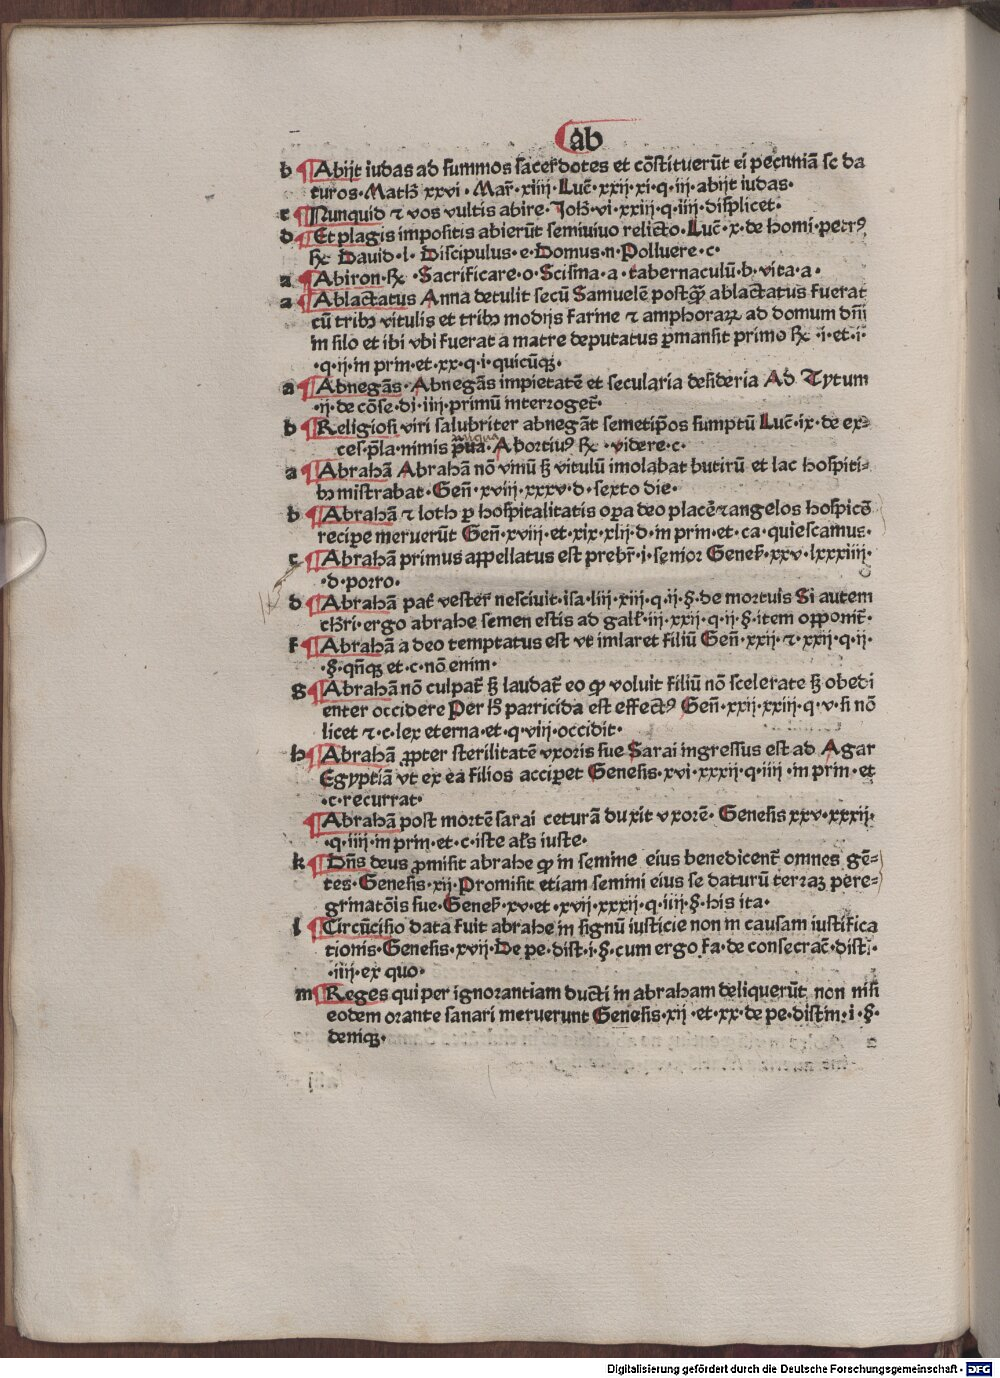 ab
b Abijt iudas ad summos sacerdotes et cōstituerūt ei pecuniā se da
turos·Matħ xxvi·Mar̄·xiiij·Luc̄·xxij·xi·q·iij·abijt iudas·
c Nunquid ⁊ vos vultis abire·Joħ·vi·xxiij·q·iiij·displicet·
d Et plagis impositis abierūt semiuiuo relicto·Luc̄·x·de homi·petrꝰ
℞c David·l·Discipulus·e·Domus·n·Polluere·c·
a Abiron·℞c·Sacrificare·o·Scisma·a·tabernaculū·b·vita·a·
a Ablactatus Anna detulit secū Samuelē postꝙ̄ ablactatus fuerat
cū tribꝫ vitulis et tribꝫ modijs farine ⁊ amphoraꝝ ad domum dn̄i
in silo et ibi vbi fuerat a matre deputatus ꝑmansit primo ℞c·i·et·i·
·q·ij·in prin·et·xx·q·i·quicūqꝫ·
a Abnegās·Abnegās impietatē et secularia desideria Ad Tytum
·ij·de cōse·di·iiij·primū interroget̄·
b Religiosi viri salubriter abnegāt semetip̄os sumptū Luc̄·ix·de ex=
ces·p̄la·nimis p̄ua·Abortiuꝰ ℞c·videre·c·
a Abrahā Abrahā nō vinū sꝫ vitulū imolabat butirū et lac hospiti=
bꝫ mistrabat·Gen̄·xviij·xxxv·d·sexto die·
b Abrahā ⁊ loth ꝑ hospitalitatis oꝑa deo placēt ⁊ angelos hospicē
recipe meruerūt Gen̄·xviij·et·xix·xlij·d·in prin·et·ca·quiescamus·
c Abrahā primus appellatus est prebr̄·i·senior Genes̄·xxv·lxxxiiij·
·d·porro·
d Abrahā pat̄ vester nesciuit·isa·liij·xiij·q·ij·§·de mortuis Si autem
cħri·ergo abrahe semen estis ad gall̄·iij·xxij·q·ij·§·item opponit̄·
f Abrahā a deo temptatus est vt imlaret filiū Gen̄·xxij·⁊·xxij·q·ij·
·§·qn̄qꝫ et·c·nō enim·
g Abrahā nō culpat̄ sꝫ laudat̄ eo ꝙ voluit filiū nō scelerate sꝫ obedi
enter occidere Per ħ parricida est effectꝰ Gen̄·xxij·xxiij·q·v·si nō
licet ⁊·c·lex eterna·et·q·viij·occidit·
h Abrahā ꝓpter sterilitatē vxoris sue Sarai ingressus est ad Agar
Egyptiā vt ex ea filios acciꝑet Genesis·xvi·xxxij·q·iiij·in prin·et
·c·recurrat·
Abrahā post mortē sarai ceturā duxit vxorē·Genesis xxv·xxxij·
·q·iiij·in prin·et·c·iste al̄s iuste·
k Dn̄s deus ꝓmisit abrahe ꝙ in semine eius benedicent̄ omnes gē=
tes·Genesis·xij·Promisit etiam semini eius se daturū terraꝫ pere=
grinatōis sue·Genes̄·xv·et·xvij·xxxij·q·iiij·§·his ita·
l Circūcisio data fuit abrahe in signū iusticie non in causam iustifica
tionis·Genesis·xvij·De pe·dist·i·§·cum ergo·fa·de consecrac̄·disti·
·iiij·ex quo·
m Reges qui per ignorantiam ducti in abraham deliquerūt non nisi
eodem orante sanari meruerunt Genesis·xij·et·xx·de pe·distin·i·§·
deniqꝫ·
Digitalisierung gefördert durch die Deutsche Forschungsgemeinschaft - DFG